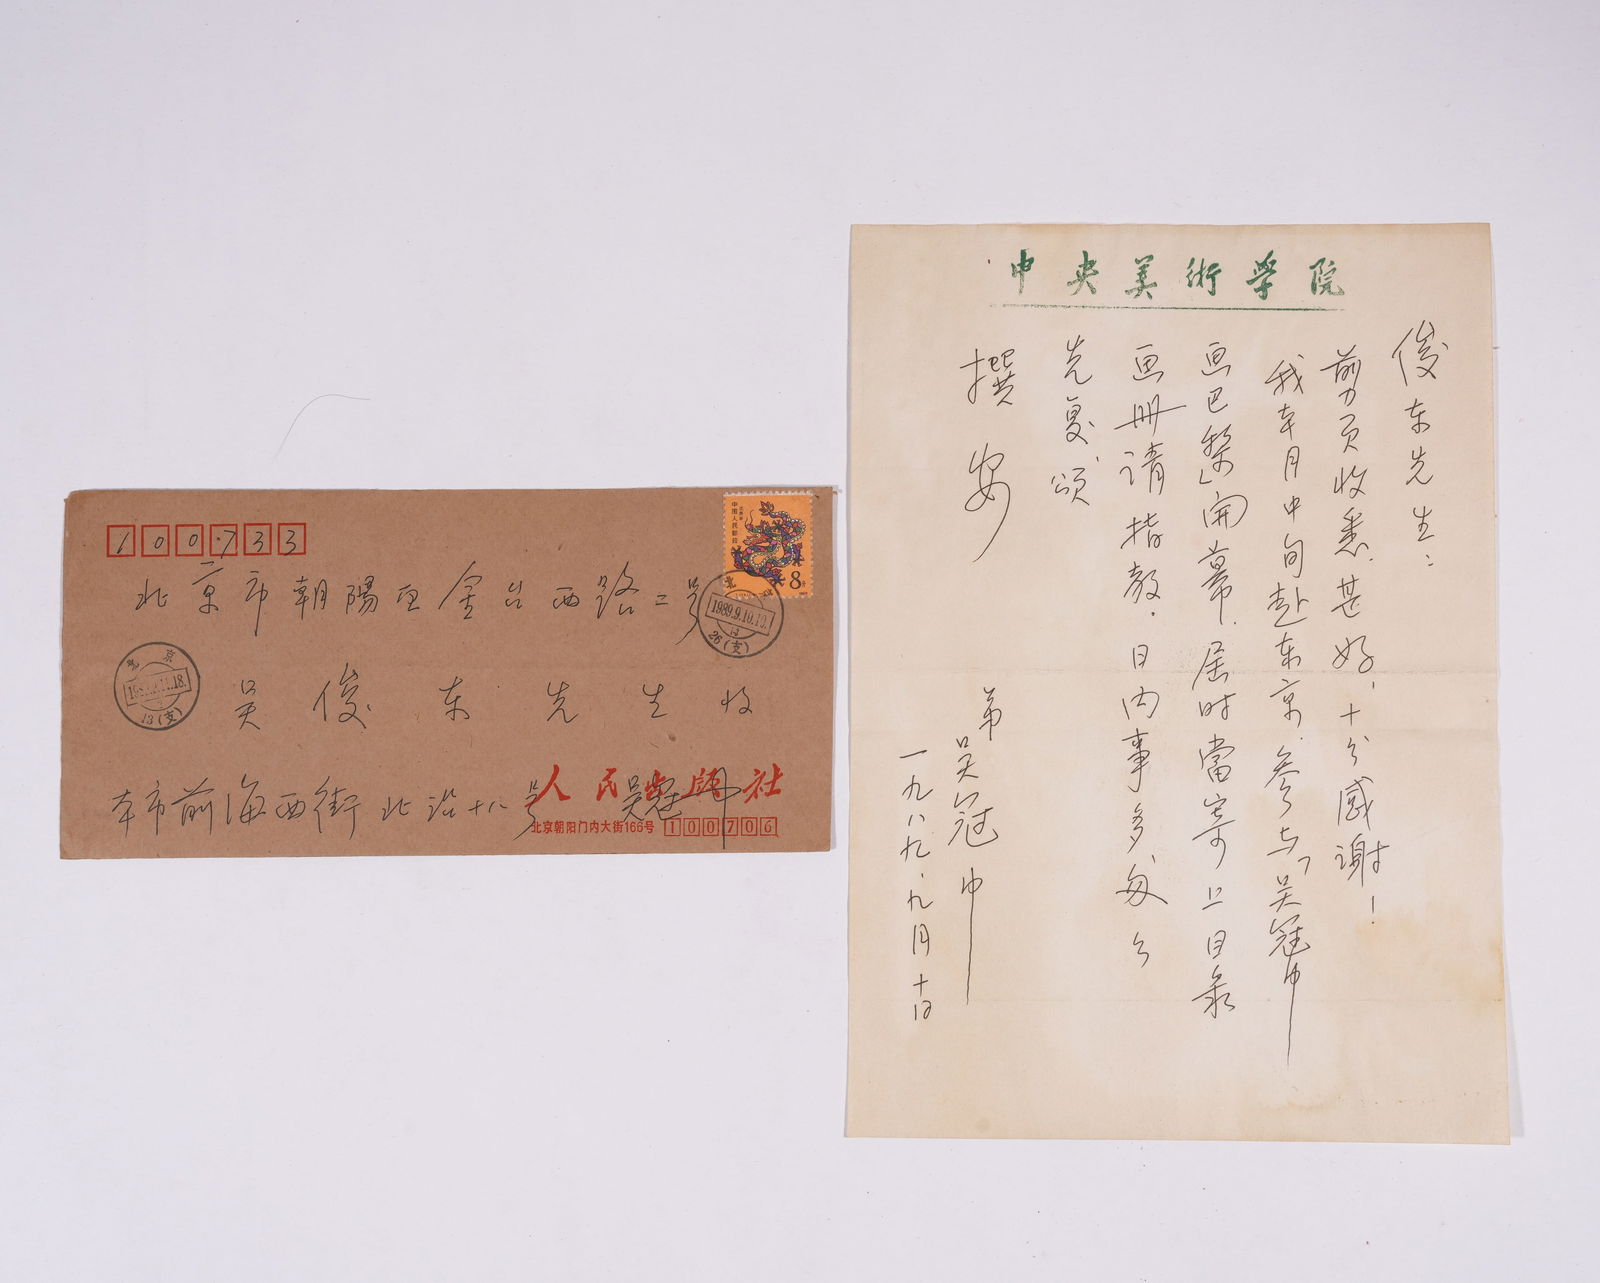 100733
北京市朝陽区金台西路二号
吴俊东先生收
本市前海西街北沿十八号 吴冠中
人民出版社
北京朝阳门内大街166号 100706
中国人民邮政
8分
北京
1989.9.10.10
26(支)
北京
13(支)
中央美術學院
俊东先生：
剪页收悉，甚好，十分感谢！
我本月中旬赴东京，参与「吴冠中
画巴黎」開幕，届时當寄上目录
画册请指教，日内事多，匆匆
先复，颂
撰安
弟
吴冠中
一九八九、九月十日